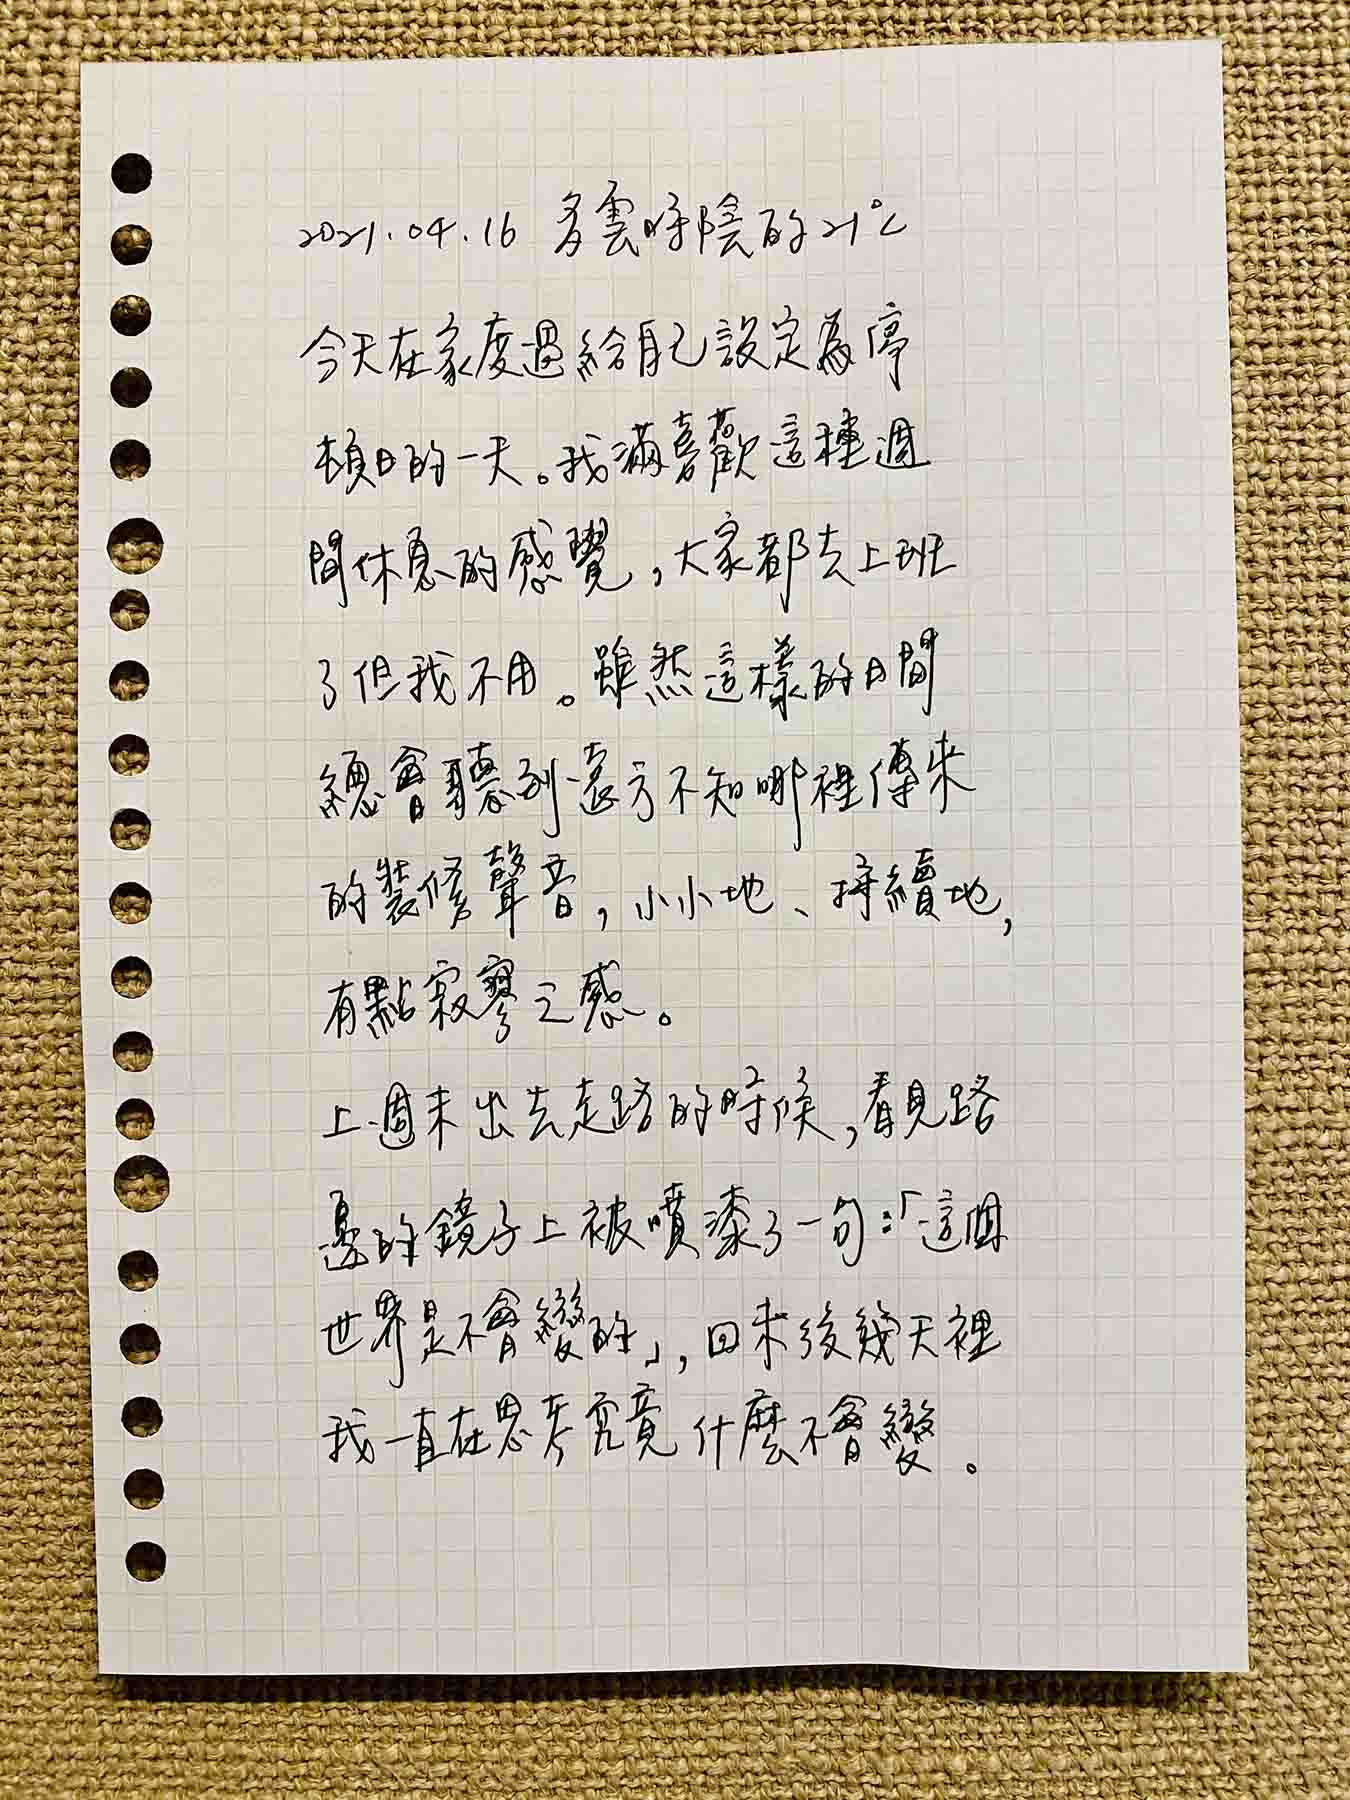 2021.04.16 多雲時陰的21℃
今天在家度過給自己設定為停
頓日的一天。我滿喜歡這種週
間休息的感覺，大家都去上班
了但我不用。雖然這樣的日間
總會聽到遠方不知哪裡傳來
的裝修聲音，小小地、持續地，
有點寂寥之感。
上週末出去走路的時候，看見路
邊的鏡子上被噴漆了一句：「這個
世界是不會變的」，回來後幾天裡
我一直在思考究竟什麼不會變。